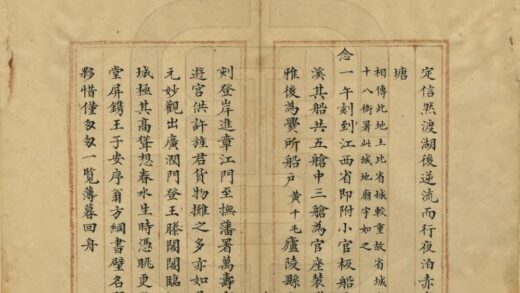 定信然渡湖後逆流而行夜泊赤
塘
相傳此地土比省城較重故省城
十八衙署此城地廟宇如之
念一午刻到江西省即附小官板船
溪其船共五艙中三艙為官座裝
雅後為爨所船戶黃千毛廬陵縣
刻登岸進章江門至撫藩署萬壽
遊宮供許旌君貨物攤之多亦如
元妙觀出廣潤門登王滕閣閣臨
城極其高聳想春水生時憑眺更
堂屏鐫王子安序翁方綱書壁名
夥惜僅匆匆一覽薄暮回舟